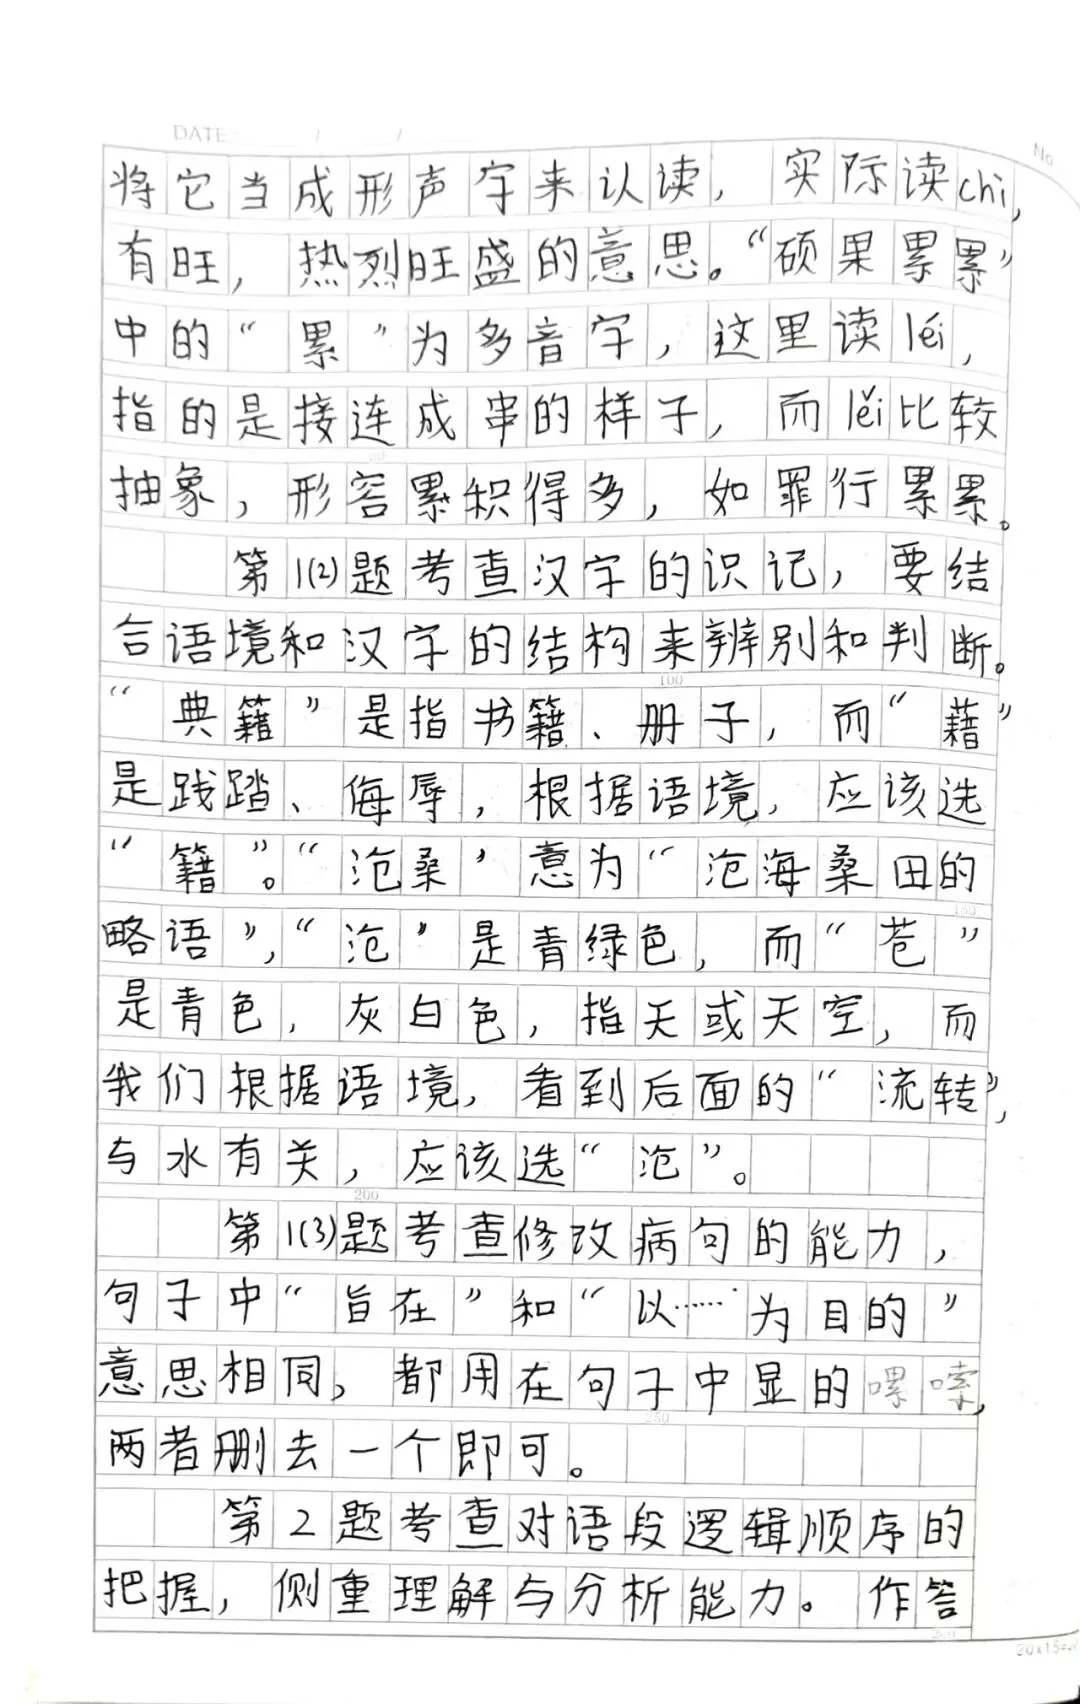 DATE / /
No
将它当成形声字来认读，实际读chì，
有旺，热烈旺盛的意思。“硕果累累”
中的“累”为多音字，这里读léi，
指的是接连成串的样子，而lěi比较
抽象，形容累积得多，如罪行累累。
第1(2)题考查汉字的识记，要结
合语境和汉字的结构来辨别和判断。
100
“典籍”是指书籍、册子，而“藉”
是践踏、侮辱，根据语境，应该选
“籍”。“沧桑”意为“沧海桑田的
150
略语”，“沧”是青绿色，而“苍”
是青色，灰白色，指天或天空，而
我们根据语境，看到后面的“流转”，
与水有关，应该选“沧”。
200
第1(3)题考查修改病句的能力，
句子中“旨在”和“以……为目的”
意思相同，都用在句子中显的啰嗦，
250
两者删去一个即可。
第2题考查对语段逻辑顺序的
把握，侧重理解与分析能力。作答